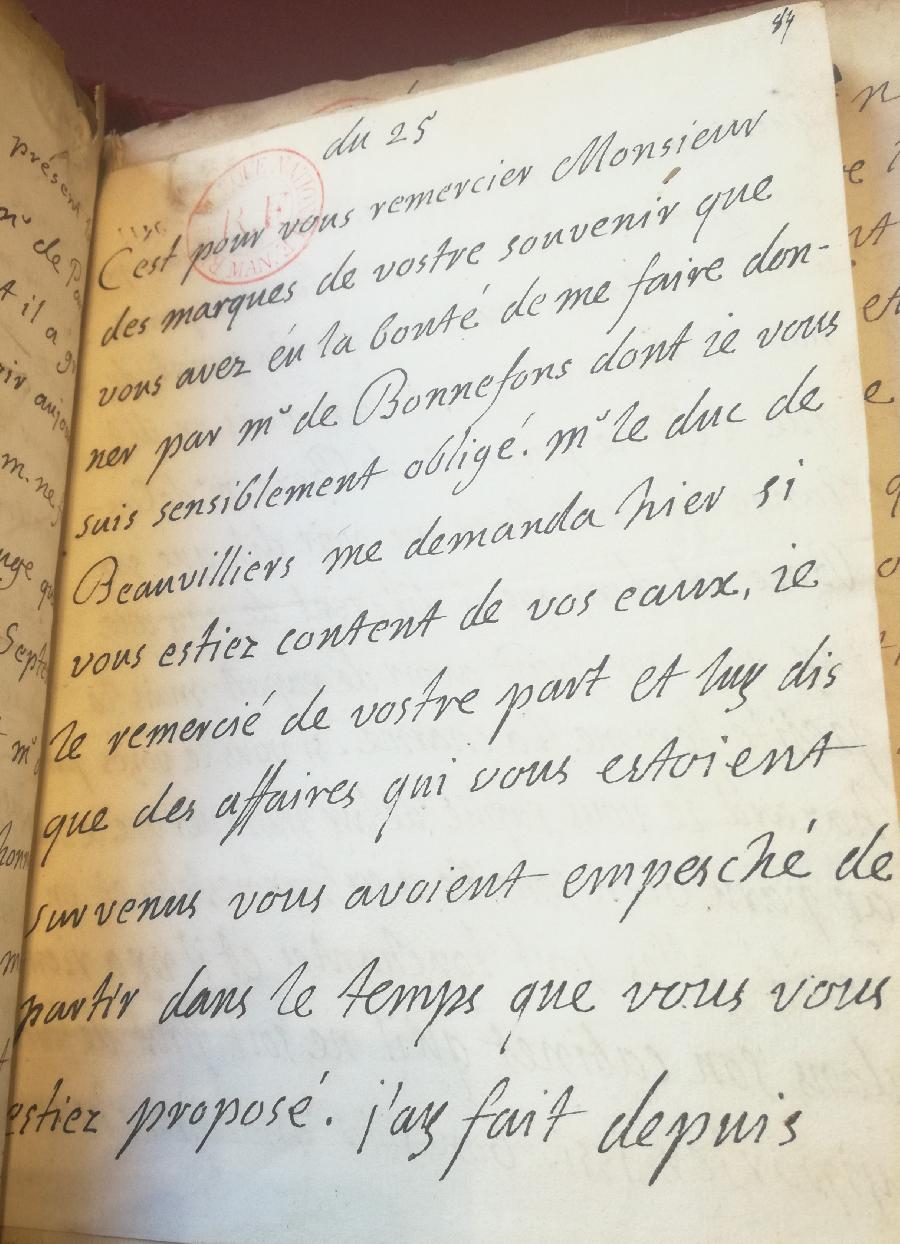 84
du 25
C'est pour vous remercier Monsieur
des marques de vostre souvenir que
vous avez éu la bonté de me faire don-
ner par mr de Bonnefons dont ie vous
suis sensiblement obligé. mr le duc de
Beauvilliers me demanda hier si
vous estiez content de vos eaux, ie
le remercié de vostre part et luy dis
que des affaires qui vous estoient
survenus vous avoient empesché de
partir dans le temps que vous vous
estiez proposé. j'ay fait depuis